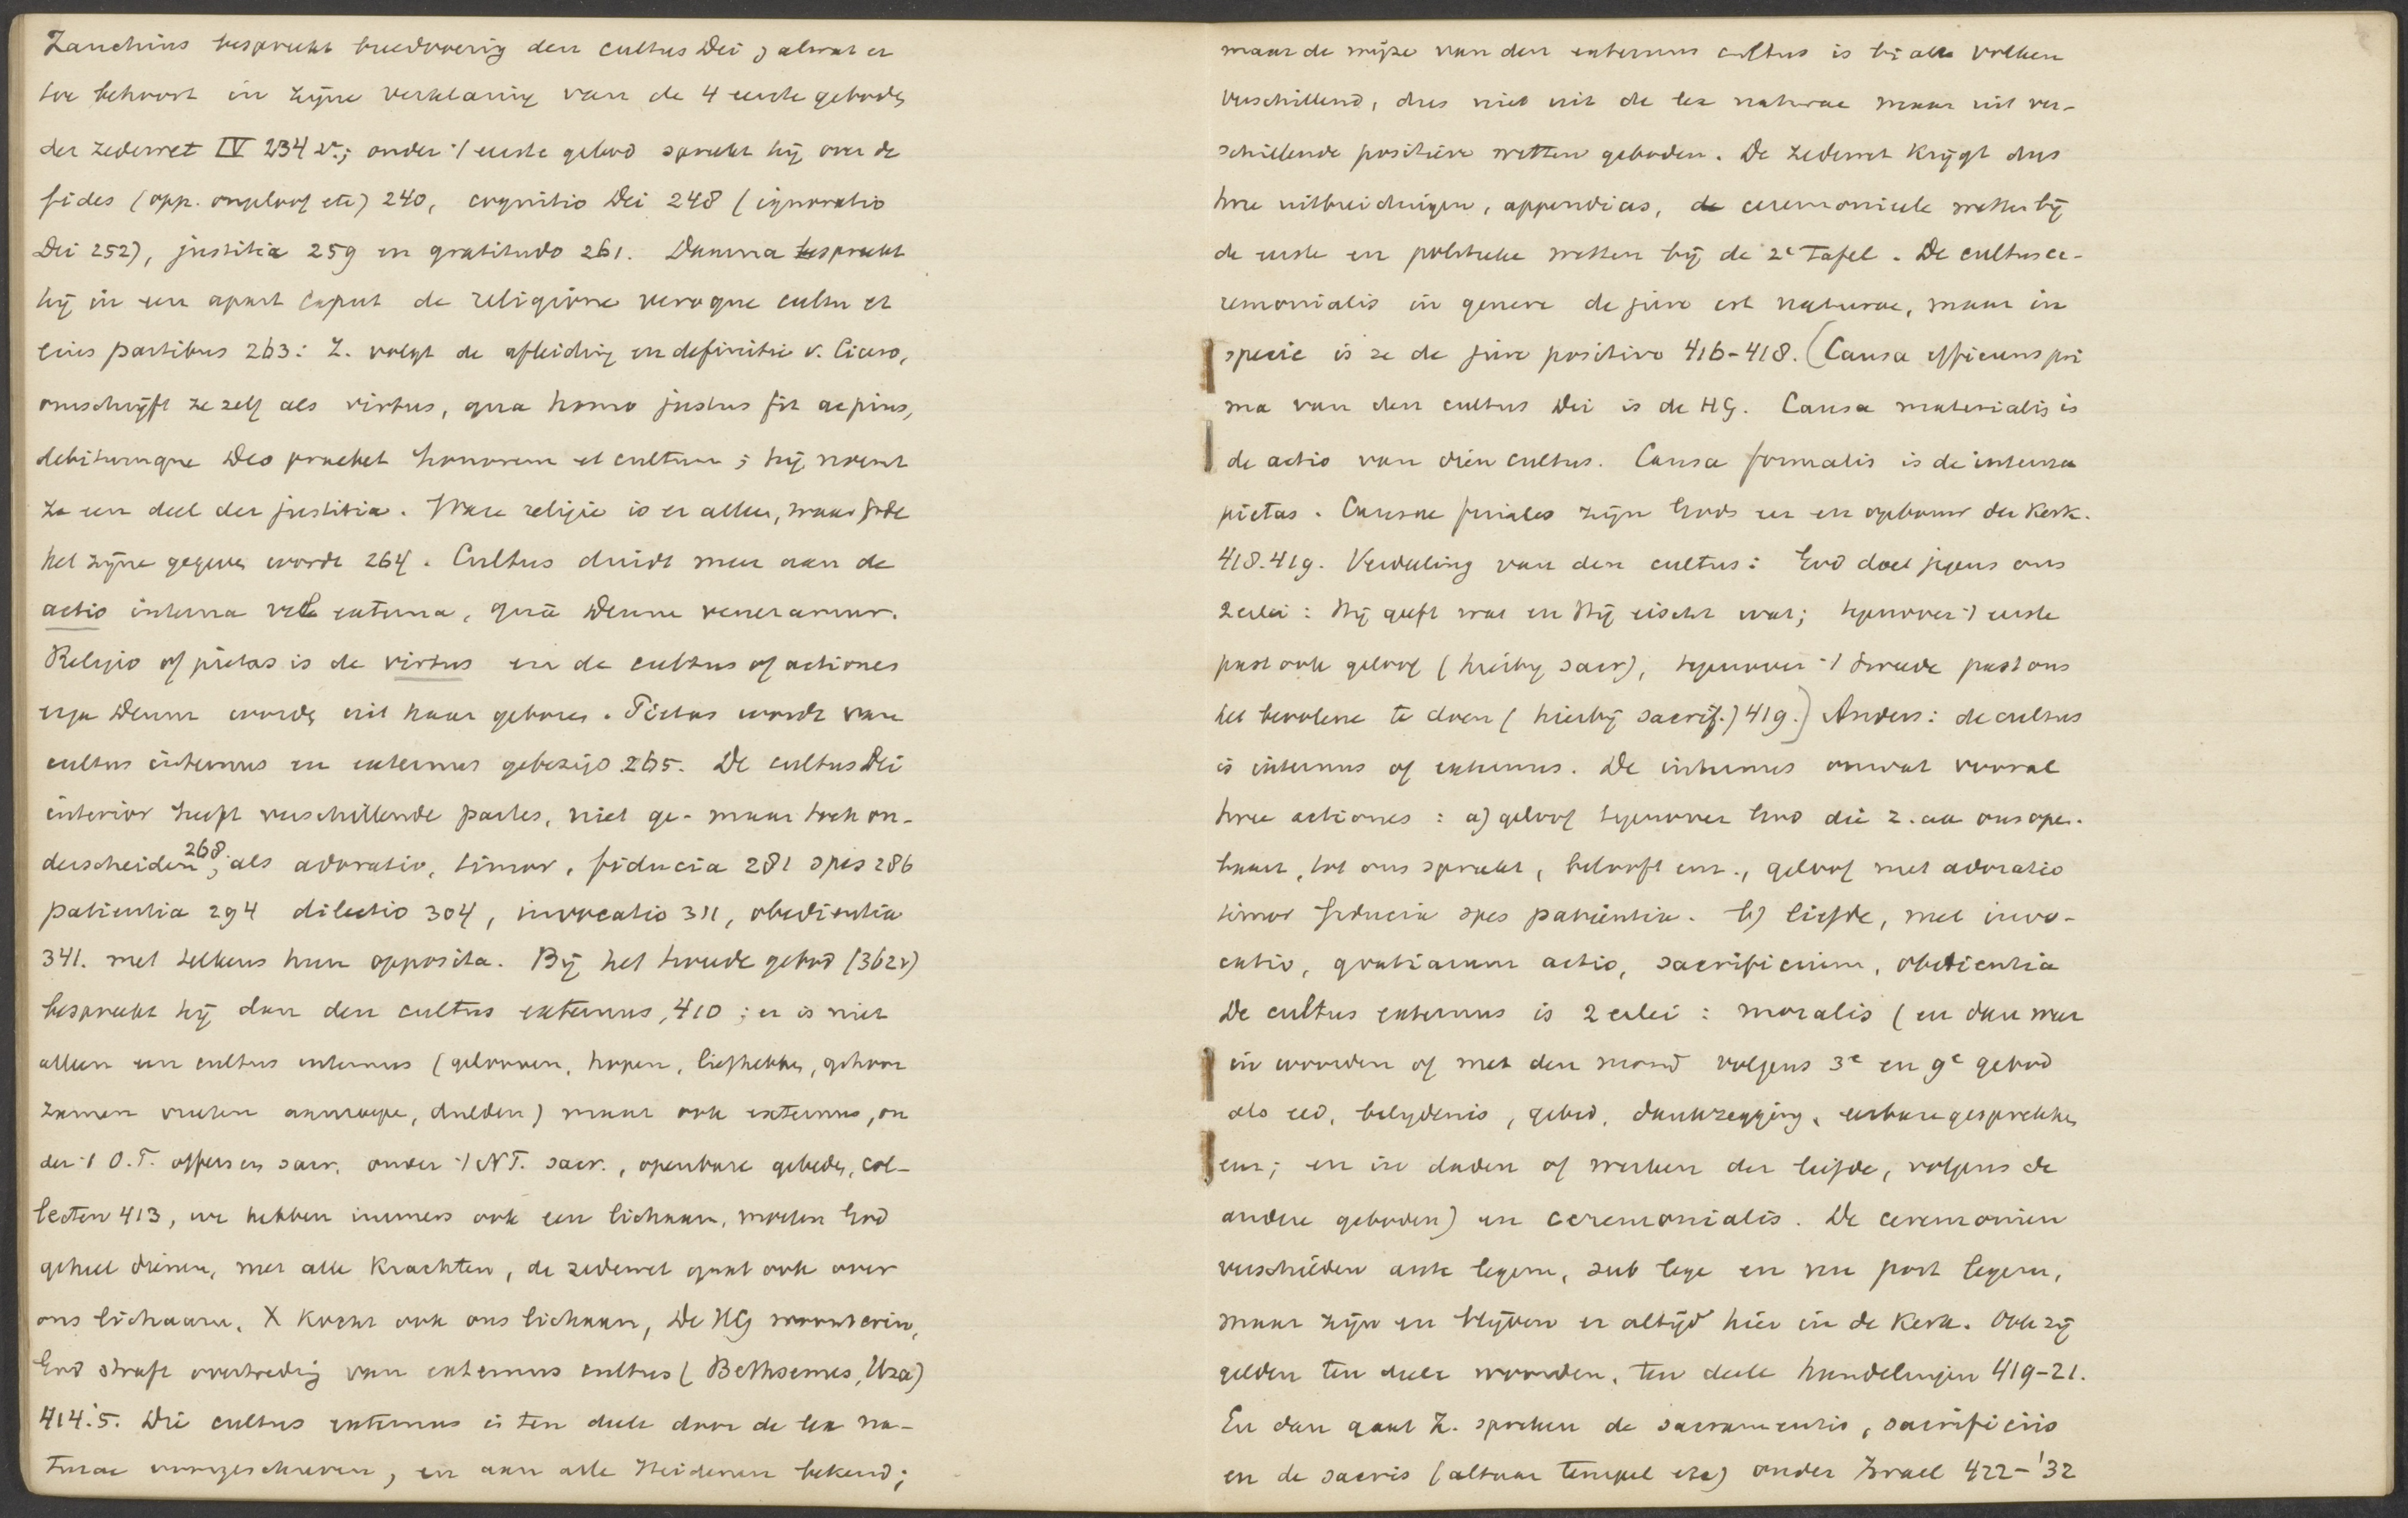 Zanchius bespreekt breedvoerig den cultus Dei & alwat er
toe behoort in zijne verklaring van de 4 eerste geboden
der zedewet IV 234 v.; onder 't eerste gebod spreekt hij over de
fides (opp. ongeloof etc) 240, cognitio Dei 248 (ignoratio
Dei 252), justitia 259 en gratitudo 261. Daarna bespreekt
hij in een apart caput de religione veroque cultu et
eius partibus 263: Z. volgt de afleiding en definitie v. Cicero,
omschrijft ze zelf als virtus, qua homo justus fit ac pius,
debitumque Deo praebet honorem et cultum; hij noemt
ze een deel der justitia. Ware religie is er alleen, waar Gode
het zijne gegeven wordt 264. Cultus duidt meer aan de
actio interna vel externa, quâ Deum veneramur.
Religio of pietas is de virtus en de cultus of actiones
erga Deum worden uit haar geboren. Pietas wordt van
cultus internus en externus gebezigd 265. De cultus Dei
interior heeft verschillende partes, niet ge- maar toch on-
derscheiden 268; als adoratio, timor, fiducia 281 spes 286
patientia 294 dilectio 304, invocatio 311, obedientia
341. met telkens hun opposita. Bij het tweede gebod (362v)
bespreekt hij dan den cultus externus, 410; er is niet
alleen een cultus internus (gelooven, hopen, liefhebben, gehoor
zamen vreezen aanroepen, dulden) maar ook externus, on
der 't O.T. offers en sacr. onder 't N.T. sacr., openbare gebeden, col-
lecten 413, we hebben immers ook een lichaam, moeten God
geheel dienen, met alle krachten, de zedewet gaat ook over
ons lichaam. X kocht ook ons lichaam, De HG woont erin,
God straft overtreding van externus cultus (Bethsemes, Uza)
414.'5. Die cultus externus is ten deele door de lex na-
turae voorgeschreven, en aan alle Heidenen bekend;
maar de wijze van den externus cultus is bi alle volken
verschillend, dus niet uit de lex naturae maar uit ver-
schillende positieve wetten geboden. De zedewet krijgt dus
twee uitbreidingen, appendices, de ceremonieele wetten bij
de eerste en politieke wetten bij de 2e Tafel. De cultus ce-
remonialis in genere de jure est naturae, maar in
specie is ze de jure positivo 416-418. (Causa efficiens pri
ma van den cultus Dei is de HG. Causa materialis is
de actio van dien cultus. Causa formalis is de interna
pietas. Causae finales zijn Gods eer en opbouw der Kerk.
418.419. Verdeeling van den cultus: God doet jegens ons
2erlei: Hij geeft wat en Hij eischt wat; tegenover 't eerste
past ook geloof (hierbij sacr), tegenover 't tweede past ons
het bevolene te doen (hierbij sacrif.) 419.) Anders: de cultus
is internus of externus. De internus omvat vooral
twee actiones: a) geloof tegenover God die z. aan ons open-
baart, tot ons spreekt, belooft enz., geloof met adoratio
timor fiducia spes patientia. b) liefde, met invo-
catio, gratiarum actio, sacrificium, obedientia
De cultus externus is 2erlei: moralis (en dan weer
in woorden of met den mond volgens 3e en 9e gebod
als eed, belydenis, gebed, dankzegging, eerbare gesprekken
enz; en in daden of werken der liefde, volgens de
andere geboden) en ceremonialis. De ceremonien
verschilden ante legem, sub lege en nu post legem,
maar zijn en blijven er altijd hier in de Kerk. Ook zij
gelden ten deele woorden, ten deele handelingen 419-21.
En dan gaat Z. spreken de sacramentis, sacrificiis
en de sacris (altaar tempel etc) onder Israel 422-'32